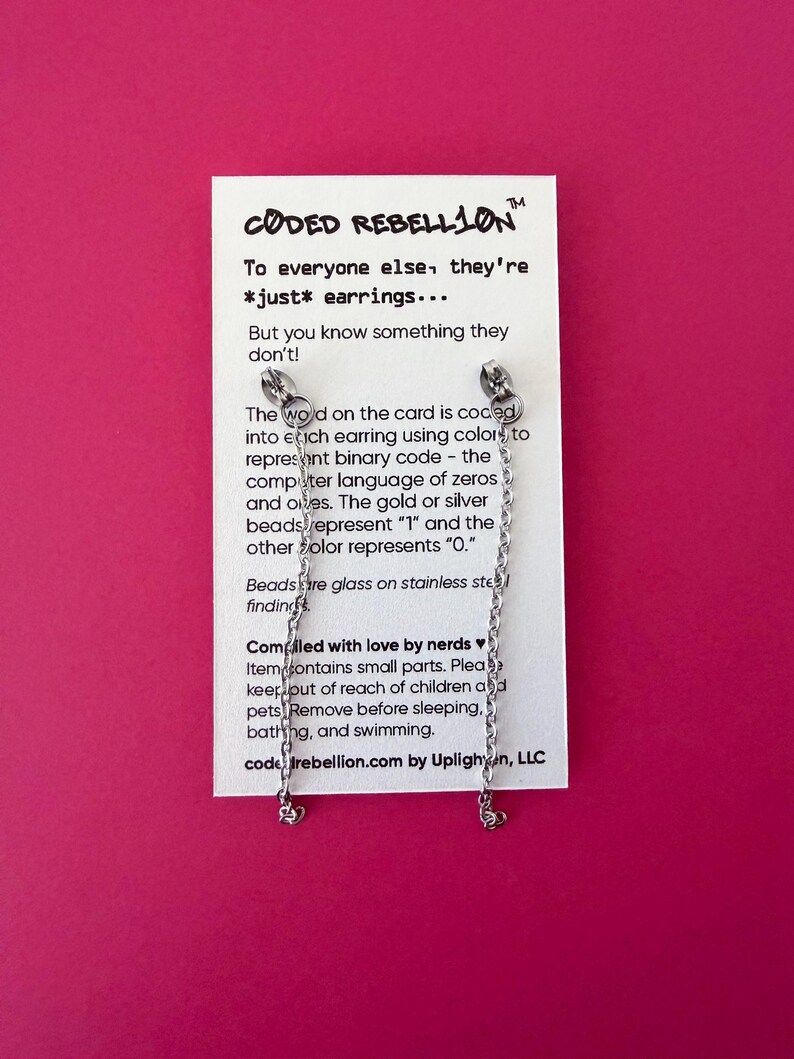 C0DED REBELL10N™
To everyone else, they're
*just* earrings...
But you know something they
don't!
The word on the card is coded
into each earring using colors to
represent binary code - the
computer language of zeros
and ones. The gold or silver
beads represent "1" and the
other color represents "0."
Beads are glass on stainless steel
findings.
Compiled with love by nerds ♥
Item contains small parts. Please
keep out of reach of children and
pets. Remove before sleeping,
bathing, and swimming.
codedrebellion.com by Uplighten, LLC